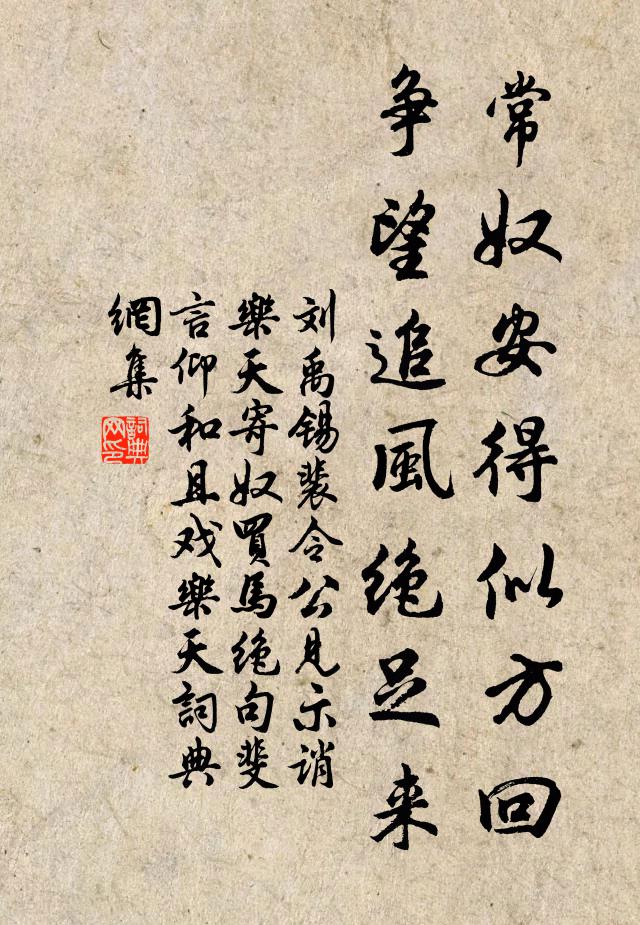 常奴安得似方回
争望追風绝足来
刘禹锡裴令公見示誚
樂天寄奴買馬绝句斐
言仰和且戏樂天詞典
網集
詞典網印